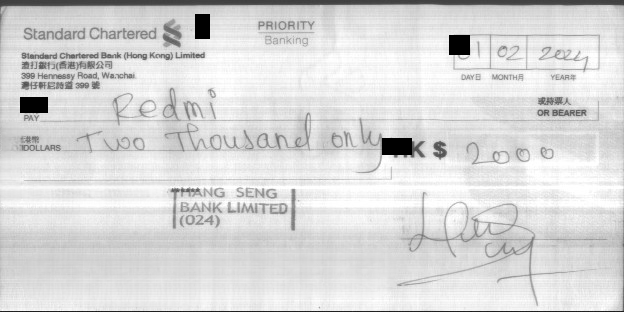 Standard Chartered
PRIORITY
Banking
Standard Chartered Bank (Hong Kong) Limited
渣打銀行(香港)有限公司
399 Hennessy Road, Wanchai.
灣仔軒尼詩道 399 號
01 02 2024
DAY日 MONTH月 YEAR年
PAY Redmi
或持票人
OR BEARER
港幣
DOLLARS Two Thousand only
K $ 2000
HANG SENG
BANK LIMITED
(024)